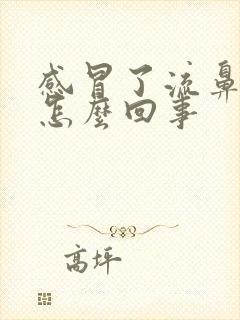 感冒了流鼻
怎麼回事
高坪